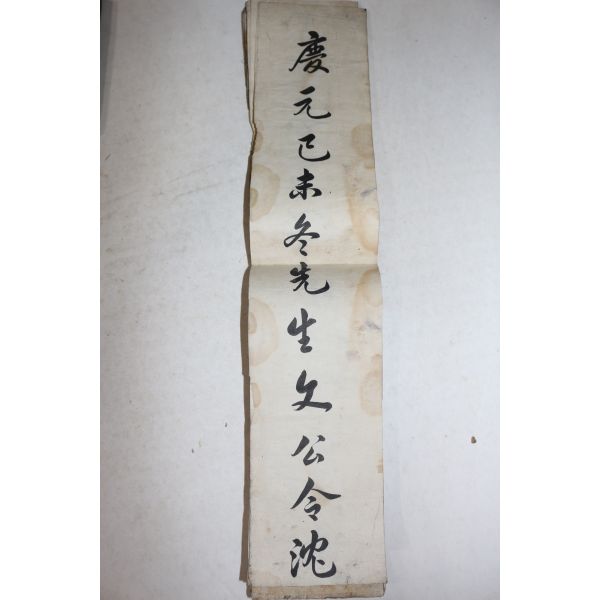 慶元己未冬先生文公令沈